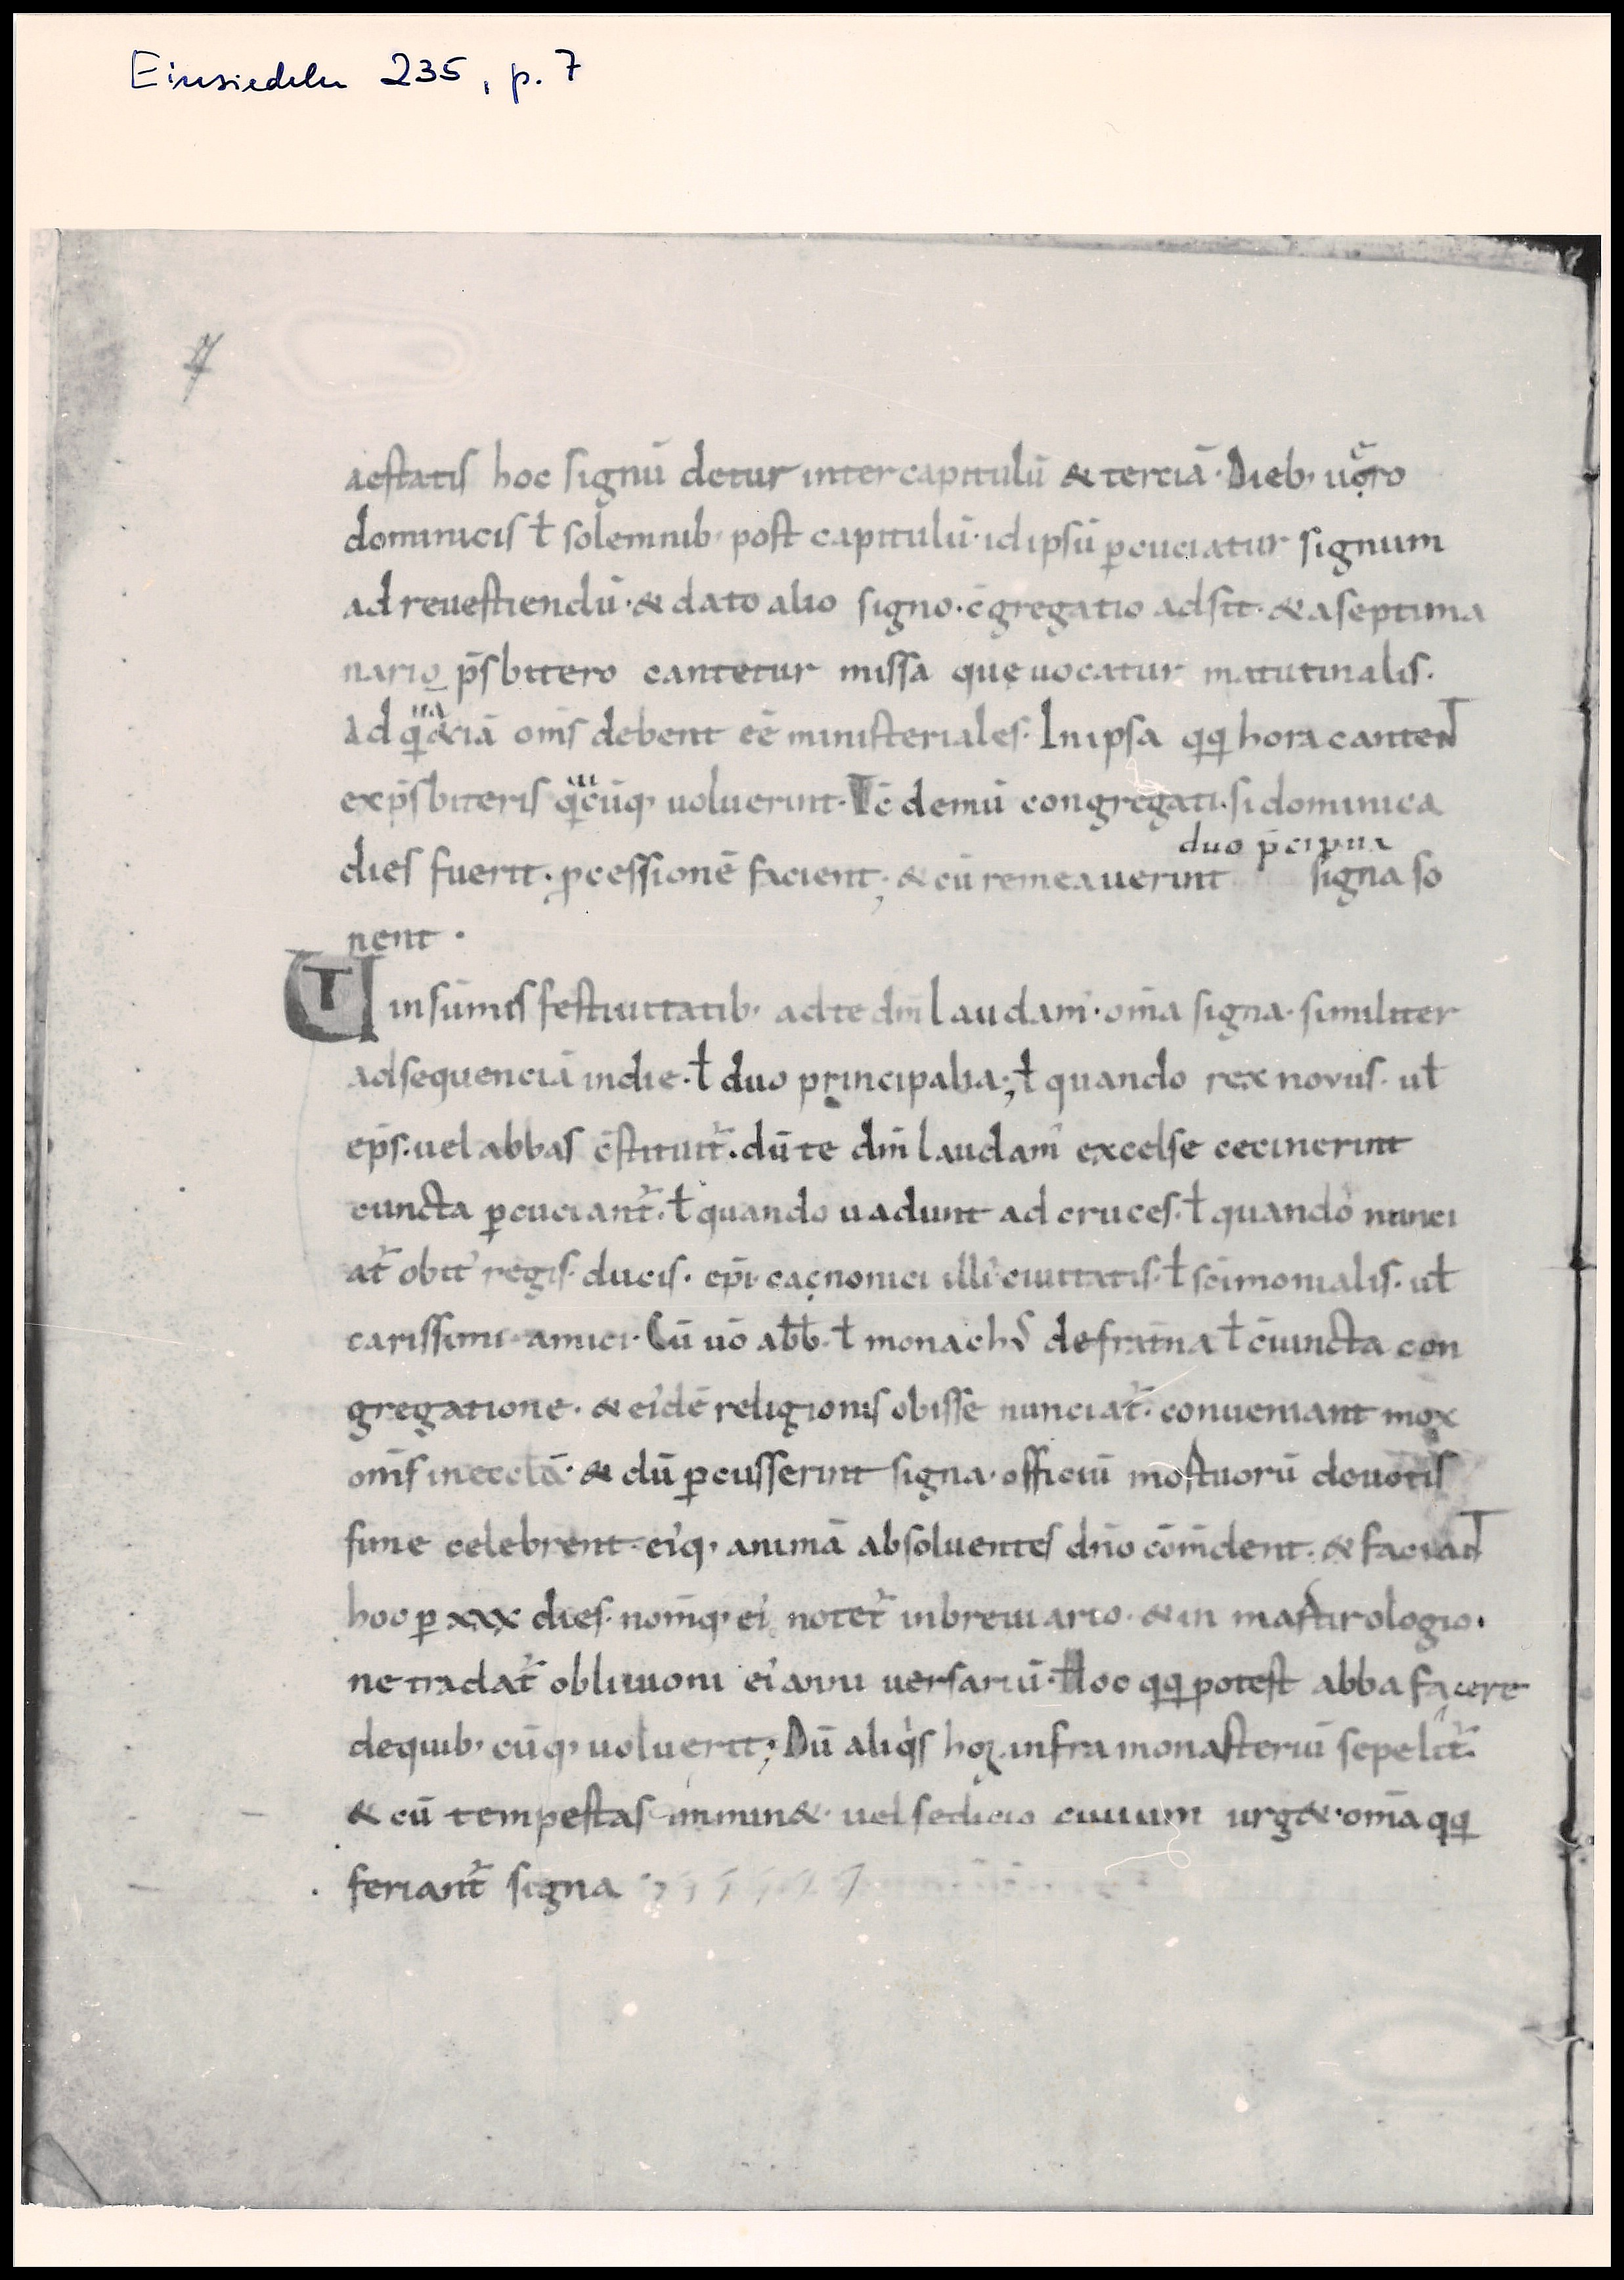 Einsiedeln 235, p. 7
7
aestatis hoc signū detur inter capitulū & terciā· Dieb; uero
dominicis ł solemnib; post capitulū· id ipsū ꝑcuciatur signum
ad reuestiendū· & dato alio signo· c̄gregatio adsit· & a septima
nario p̄sbitero cantetur missa quę uocatur matutinalis·
om̄s debent eē ministeriales· In ipsa qq hora canteNT
ex p̄sbiteris uoluerint· demū congregati· si dominica
duo p̄cipua
dies fuerit· ꝓcessionē facient; & cū remeauerint signa so
nent ·
UT in sūmis festiuitatib; ad te dn̄ laudam' · om̄a signa· similiter
ad sequenciā in die· ł duo principalia; ł quando rex novus· uł
ep̄s· uel abbas c̄stituit᷑· dū te dn̄ laudam' excelse cecinerint
cuncta ꝑcuciant᷑· ł quando uadunt ad cruces· ł quando nunci
at᷑ obit' regis· ducis· ep̄i· canonici illi' ciuitatis· ł sc̄imonialis· uł
carissimi amici· Cū uō abb̄· ł monachus de frat̄na ł c̄iuncta con
gregatione· & ei'dē religionis obisse nunciat᷑· conueniant mox
om̄s in ecclā· & dū ꝑcusserint signa· officiū mortuorū deuotis
sime celebrent· ei'q; animā absoluentes dn̄o cōm̄dent· & faciaNT
hoc ꝑ xxx dies· nom̄q; ei' notet᷑ in breuiario· & in martirologio·
ne tradat᷑ obliuioni ei' anniuersariū· Hoc qq potest abba facere
de quib; cūq; uoluerit; Dū aliq̇s hoꝝ infra monasteriū sepelit᷑·
& cū tempestas immin&· uel sedicio ciuium urg&· om̄a qq
feriant᷑ signa